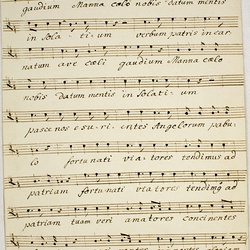 gaudium Manna cælo nobis datum mentis
in sola - ti - um verbum patris in car
natum ave cæli gaudium Manna cælo
nobis datum mentis in solati - um
pasce nos esuri - entes Angelorum pabu
lo fortunati via - tores tendimus ad
patriam fortunati viatores tendimq ad
patriam tuam veri amatores concinentes